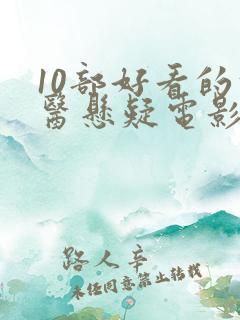 10部好看的
醫懸疑電影
路人辛
未经同意禁止转载